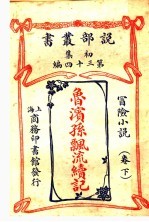 說部叢書
初集
第三十四編
冒險小說
(卷下)
魯濱孫飄流續記
上海
商務印書館發行